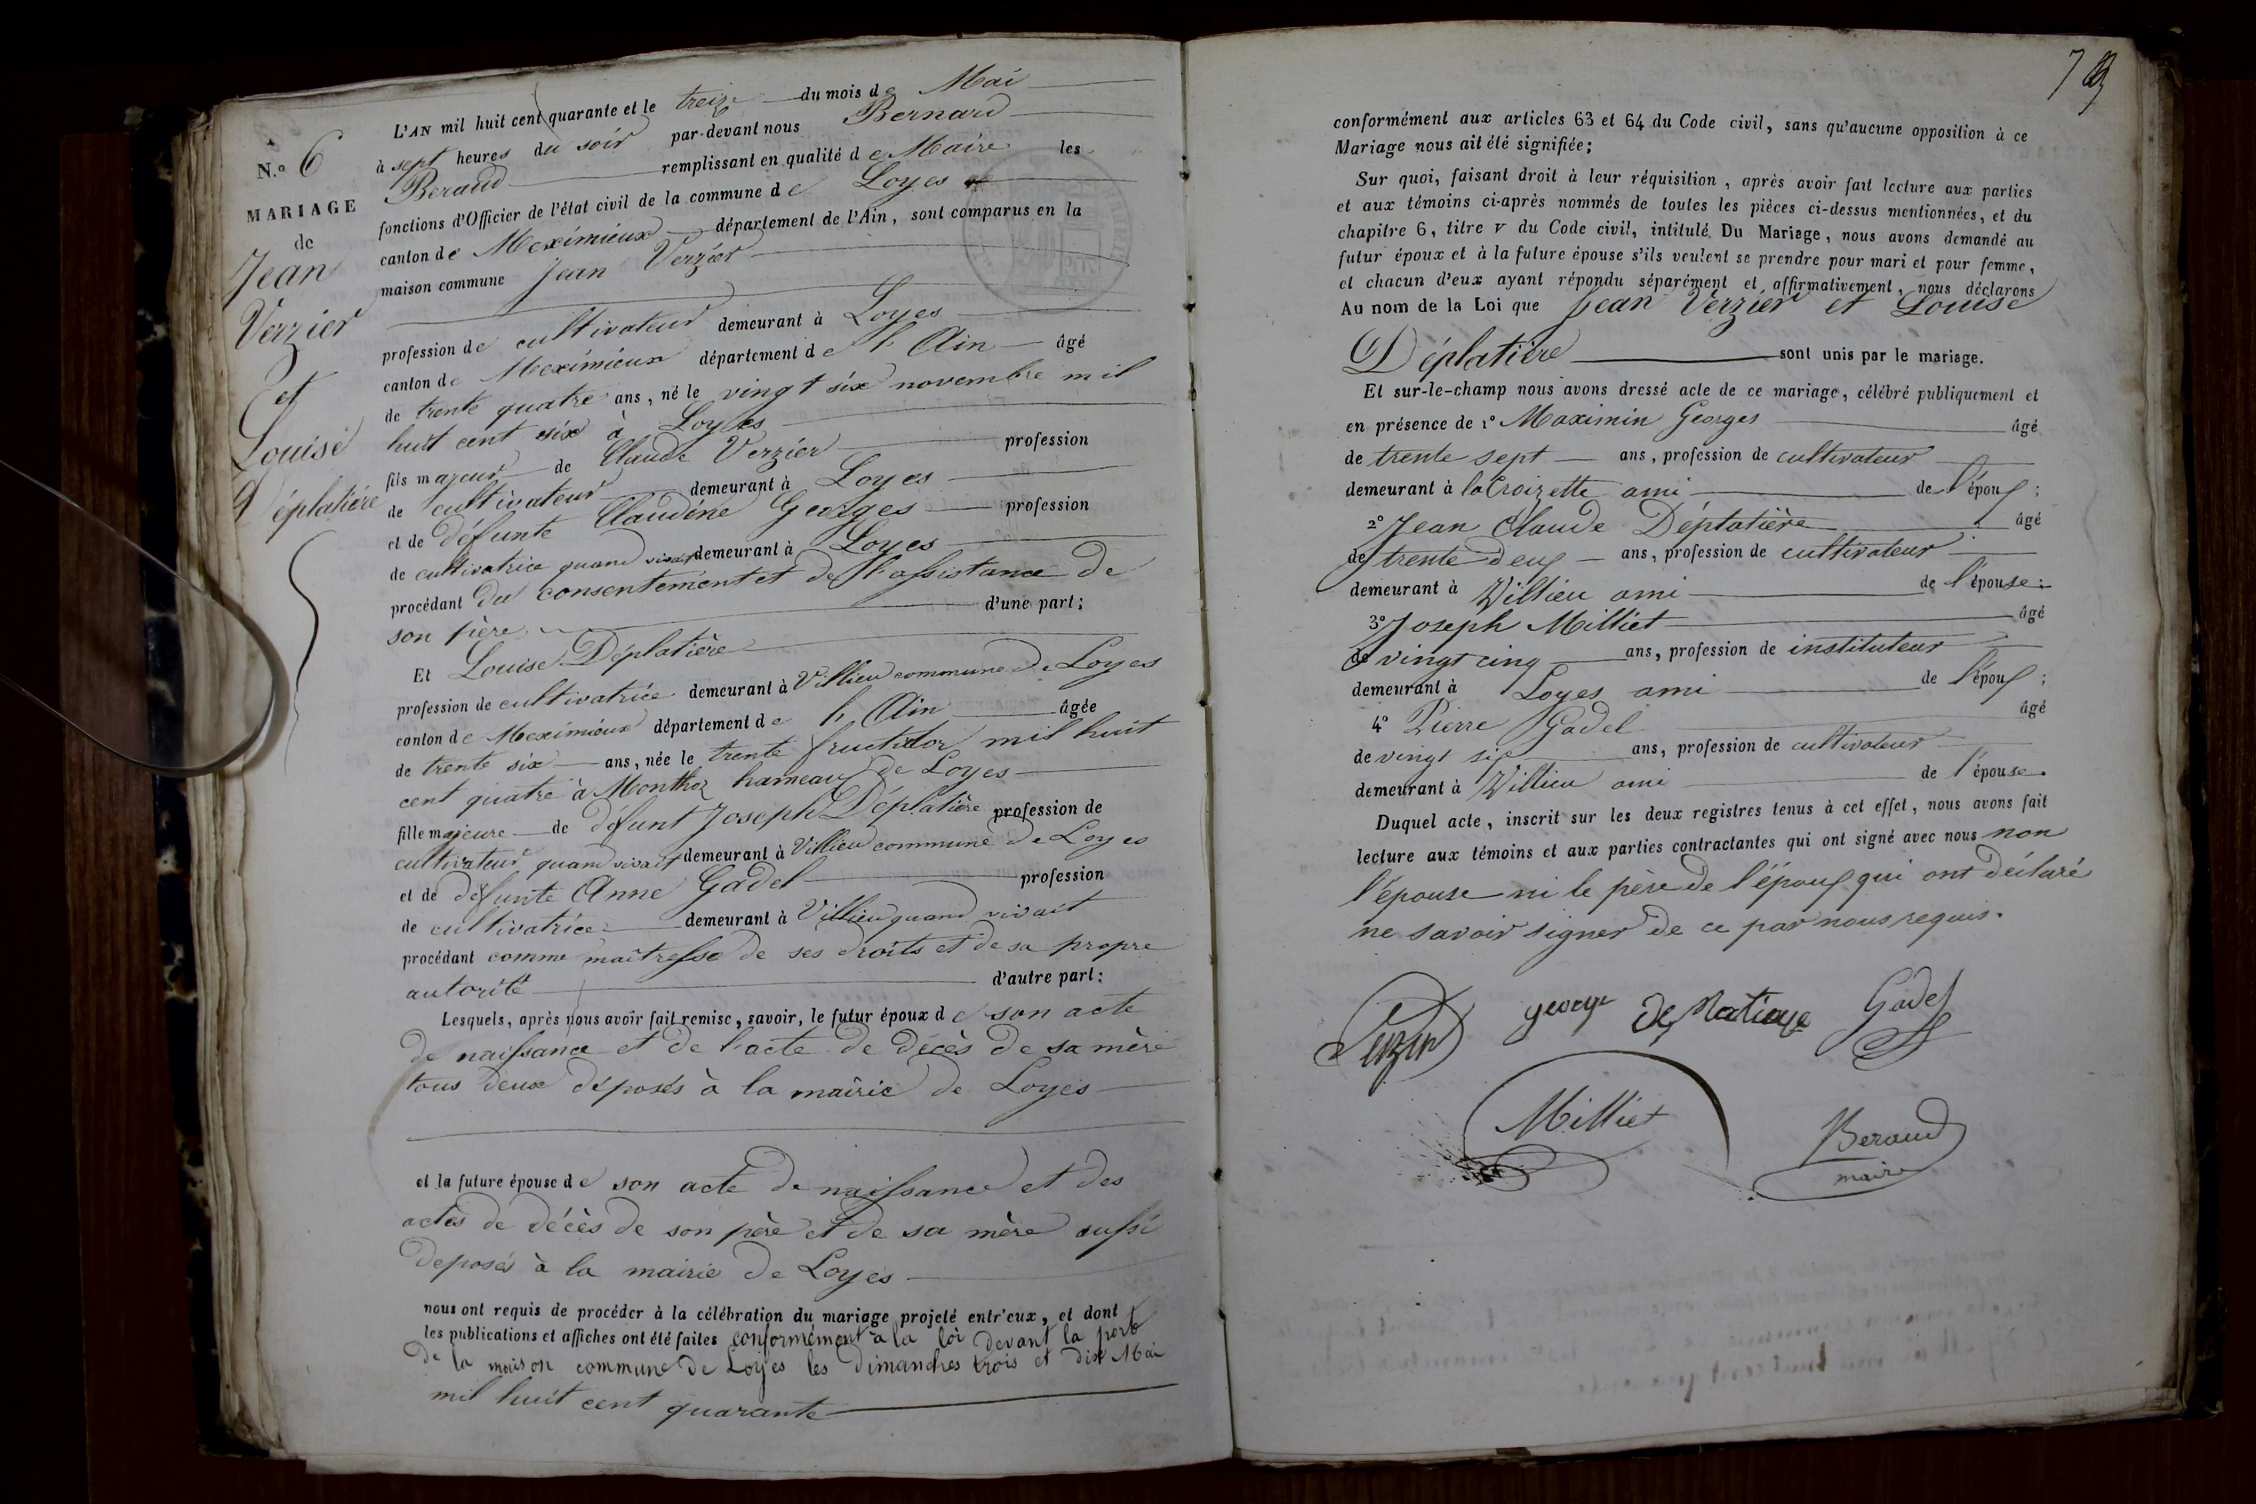 N.º 6
MARIAGE
de
Jean
Verzier
et
Louise
Déplatière
L'AN mil huit cent quarante et le treize du mois de Mai
à sept heures du soir par-devant nous Bernard
Beraud remplissant en qualité de Maire les
fonctions d'Officier de l'état civil de la commune de Loyes
canton de Meximieux département de l'Ain, sont comparus en la
maison commune Jean Verzier
profession de cultivateur demeurant à Loyes
canton de Meximieux département de l'Ain âgé
de trente quatre ans, né le vingt six novembre mil
huit cent six à Loyes
fils majeur de Claude Verzier profession
de cultivateur demeurant à Loyes
et de défunte Claudine Georges profession
de cultivatrice quand vivait demeurant à Loyes
procédant du consentement et de l'assistance de
son père d'une part;
Et Louise Déplatière
profession de cultivatrice demeurant à Villieu commune de Loyes
canton de Meximieux département de l'Ain âgée
de trente six ans, née le trente fructidor mil huit
cent quatre à Monthoz hameau de Loyes
fille majeure de défunt Joseph Déplatière profession de
cultivateur quand vivait demeurant à Villieu commune de Loyes
et de défunte Anne Gadel profession
de cultivatrice demeurant à Villieu quand vivait
procédant comme maîtresse de ses droits et de sa propre
autorité d'autre part:
Lesquels, après nous avoir fait remise, savoir, le futur époux de son acte
de naissance et de l'acte de décès de sa mère
tous deux déposés à la mairie de Loyes
et la future épouse de son acte de naissance et des
actes de décès de son père et de sa mère aussi
deposés à la mairie de Loyes
nous ont requis de procéder à la célébration du mariage projeté entr'eux, et dont
les publications et affiches ont été faites conformément à la loi devant la porte
de la maison commune de Loyes les dimanches trois et dix Mai
mil huit cent quarante
conformément aux articles 63 et 64 du Code civil, sans qu'aucune opposition à ce
Mariage nous ait été signifiée;
Sur quoi, faisant droit à leur réquisition, après avoir fait lecture aux parties
et aux témoins ci-après nommés de toutes les pièces ci-dessus mentionnées, et du
chapitre 6, titre v du Code civil, intitulé Du Mariage, nous avons demandé au
futur époux et à la future épouse s'ils veulent se prendre pour mari et pour femme,
et chacun d'eux ayant répondu séparément et affirmativement, nous déclarons
Au nom de la Loi que Jean Verzier et Louise
Déplatière sont unis par le mariage.
Et sur-le-champ nous avons dressé acte de ce mariage, célébré publiquement et
en présence de 1º Maximin Georges âgé
de trente sept ans, profession de cultivateur
demeurant à la Croizette ami de l'époux;
2º Jean Claude Déplatière âgé
de trente deux ans, profession de cultivateur
demeurant à Villieu ami de l'épouse;
3º Joseph Milliet âgé
de vingt cinq ans, profession de instituteur
demeurant à Loyes ami de l'époux;
4º Pierre Gadel âgé
de vingt six ans, profession de cultivateur
demeurant à Villieu ami de l'épouse.
Duquel acte, inscrit sur les deux registres tenus à cet effet, nous avons fait
lecture aux témoins et aux parties contractantes qui ont signé avec nous non
l'épouse ni le père de l'époux qui ont déclaré
ne savoir signer de ce par nous requis.
george Gadel
Milliet
Beraud
maire